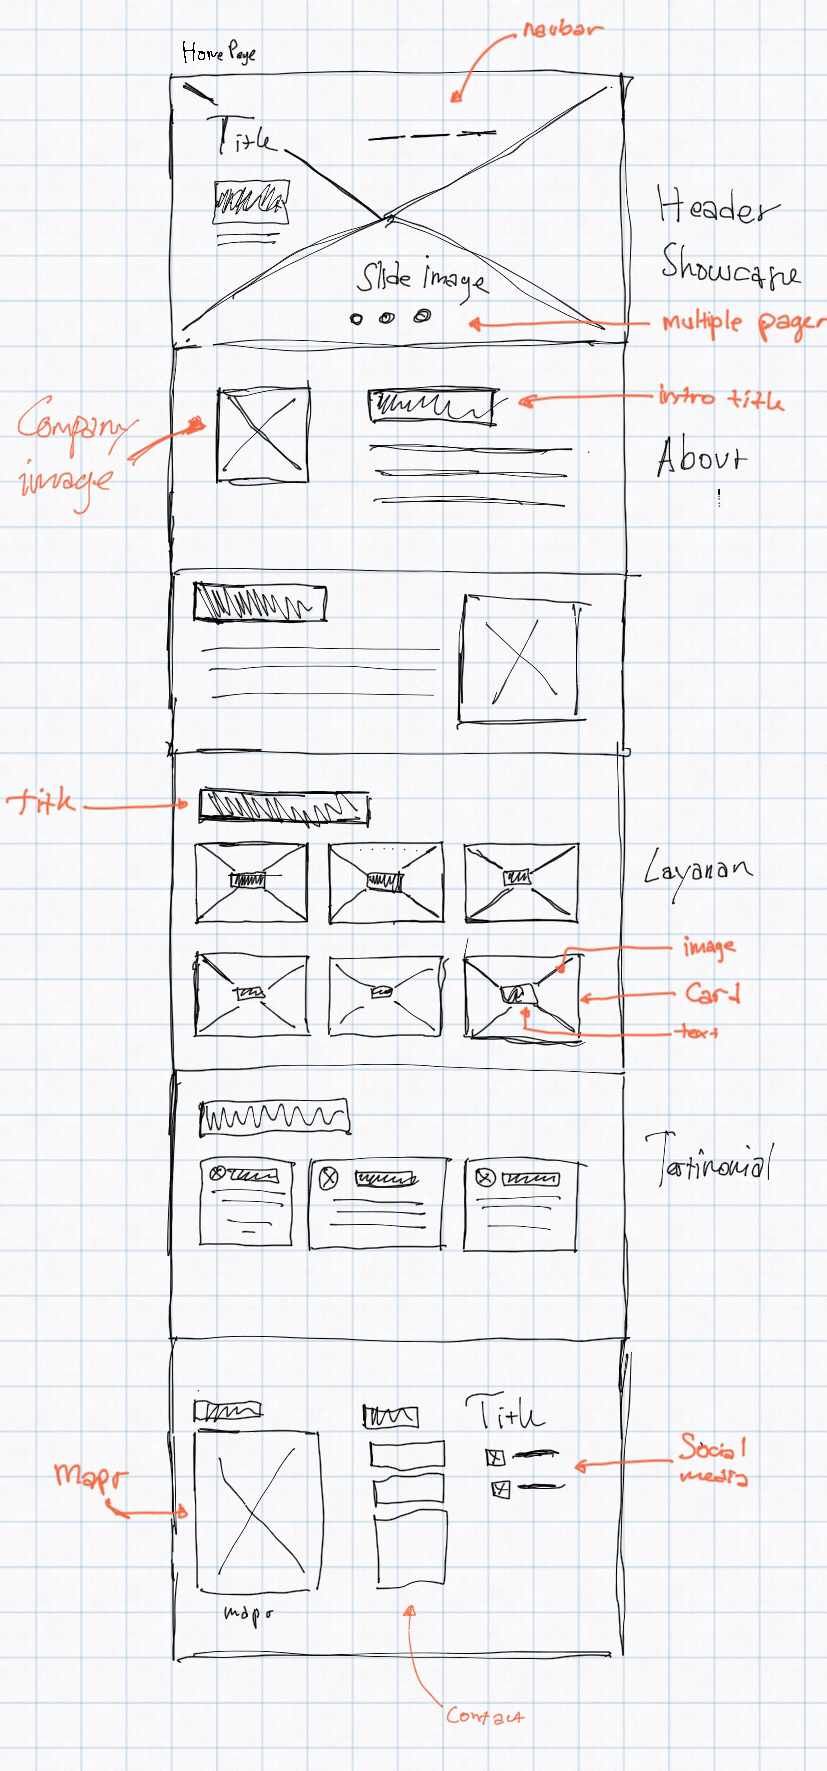 Home Page
navbar
Title
Header
Showcase
Slide image
multiple pages
Company
image
intro title
About
Title
Layanan
image
Card
text
Testimonial
Title
Social
media
Maps
maps
Contact